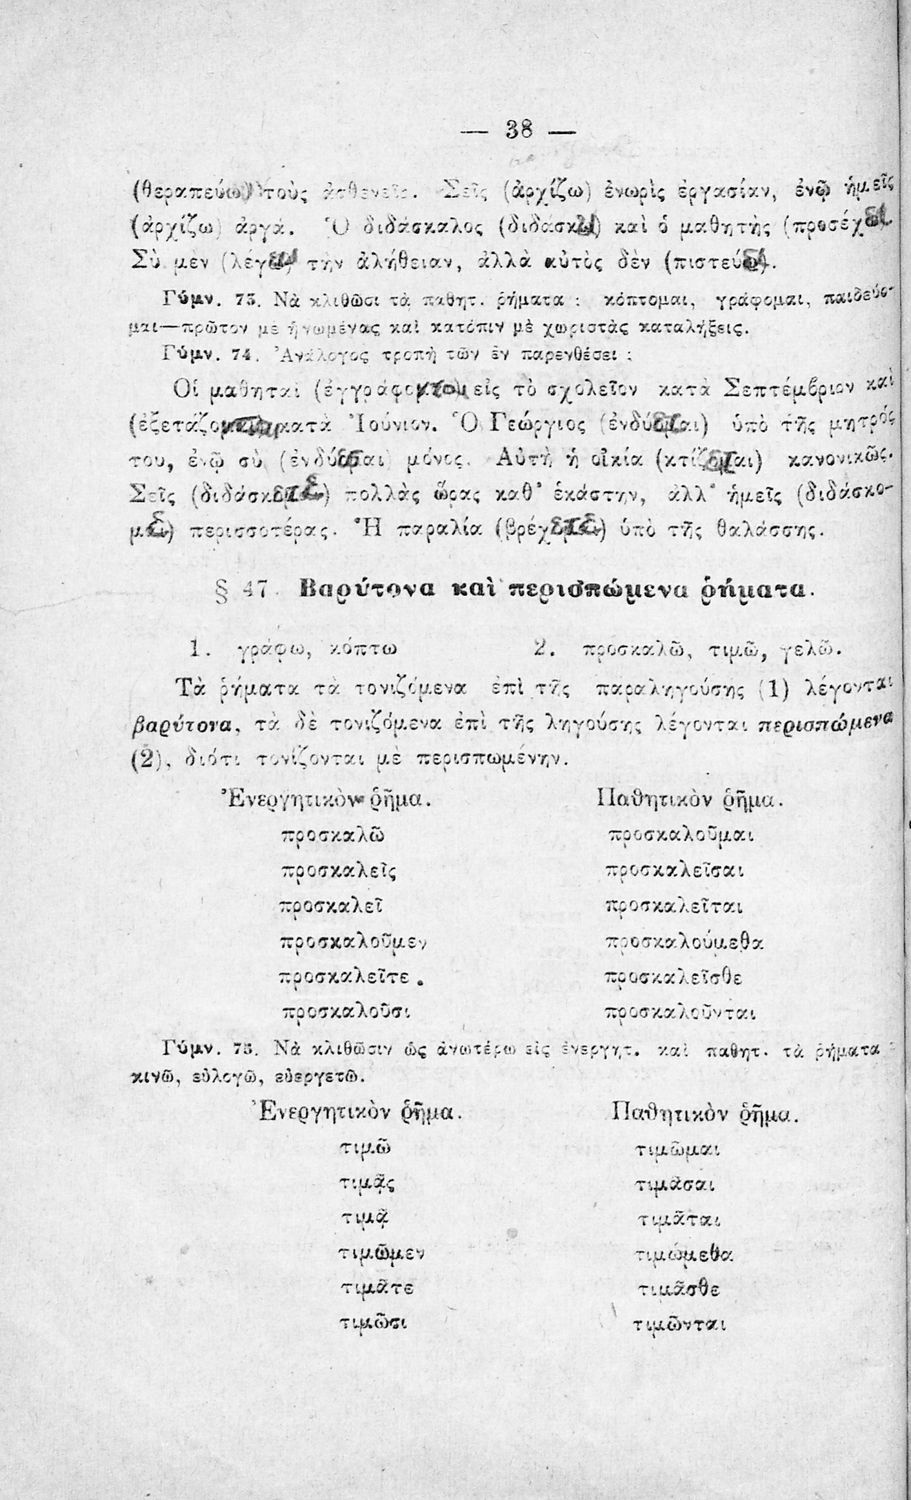 — 38 —
(θεραπεύω) τοὺς ἀσθενεῖς. Σεῖς (ἀρχίζω) ἐνωρὶς ἐργασίαν, ἐνῷ ἡμεῖς
(ἀρχίζω) ἀργά. Ὁ διδάσκαλος (διδάσκω) καὶ ὁ μαθητὴς (προσέχω).
Σὺ μὲν (λέγω) τὴν ἀλήθειαν, ἀλλὰ αὐτὸς δὲν (πιστεύω).
Γύμν. 73. Νὰ κλιθῶσι τὰ παθητ. ῥήματα : κόπτομαι, γράφομαι, παιδεύο-
μαι—πρῶτον μὲ ἡνωμένας καὶ κατόπιν μὲ χωριστὰς καταλήξεις.
Γύμν. 74. Ἀνάλογος τροπὴ τῶν ἐν παρενθέσει :
Οἱ μαθηταὶ εἰς τὸ σχολεῖον κατὰ Σεπτέμβριον καὶ
κατὰ Ἰούνιον. Ὁ Γεώργιος (ἐνδύομαι) ὑπὸ τῆς μητρός
του, ἐνῷ σὺ (ἐνδύομαι) μόνος. Αὐτὴ ἡ οἰκία (κτίζομαι) κανονικῶς.
Σεῖς (διδάσκομαι) πολλὰς ὥρας καθ' ἑκάστην, ἀλλ' ἡμεῖς (διδάσκο-
μαι) περισσοτέρας. Ἡ παραλία (βρέχομαι) ὑπὸ τῆς θαλάσσης.
§ 47. Βαρύτονα καὶ περισπώμενα ῥήματα.
1. γράφω, κόπτω 2. προσκαλῶ, τιμῶ, γελῶ.
Τὰ ῥήματα τὰ τονιζόμενα ἐπὶ τῆς παραληγούσης (1) λέγονται
βαρύτονα, τὰ δὲ τονιζόμενα ἐπὶ τῆς ληγούσης λέγονται περισπώμενα
(2), διότι τονίζονται μὲ περισπωμένην.
Ἐνεργητικὸν ῥῆμα. Παθητικὸν ῥῆμα.
προσκαλῶ προσκαλοῦμαι
προσκαλεῖς προσκαλεῖσαι
προσκαλεῖ προσκαλεῖται
προσκαλοῦμεν προσκαλούμεθα
προσκαλεῖτε προσκαλεῖσθε
προσκαλοῦσι προσκαλοῦνται
Γύμν. 75. Νὰ κλιθῶσιν ὡς ἀνωτέρω εἰς ἐνεργητ. καὶ παθητ. τὰ ῥήματα :
κινῶ, εὐλογῶ, εὐεργετῶ.
Ἐνεργητικὸν ῥῆμα. Παθητικὸν ῥῆμα.
τιμῶ τιμῶμαι
τιμᾷς τιμᾶσαι
τιμᾷ τιμᾶται
τιμῶμεν τιμώμεθα
τιμᾶτε τιμᾶσθε
τιμῶσι τιμῶνται